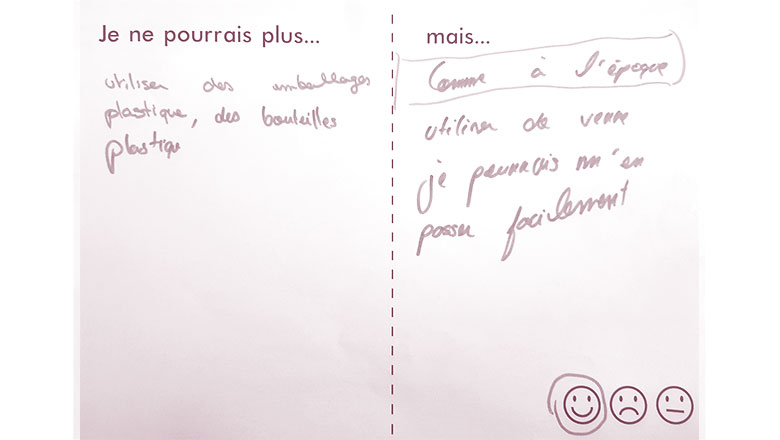 Je ne pourrais plus...
utiliser des emballages
plastique, des bouteilles
plastique
mais...
Comme à l'époque
utiliser de verre
je pourrais m'en
passer facilement